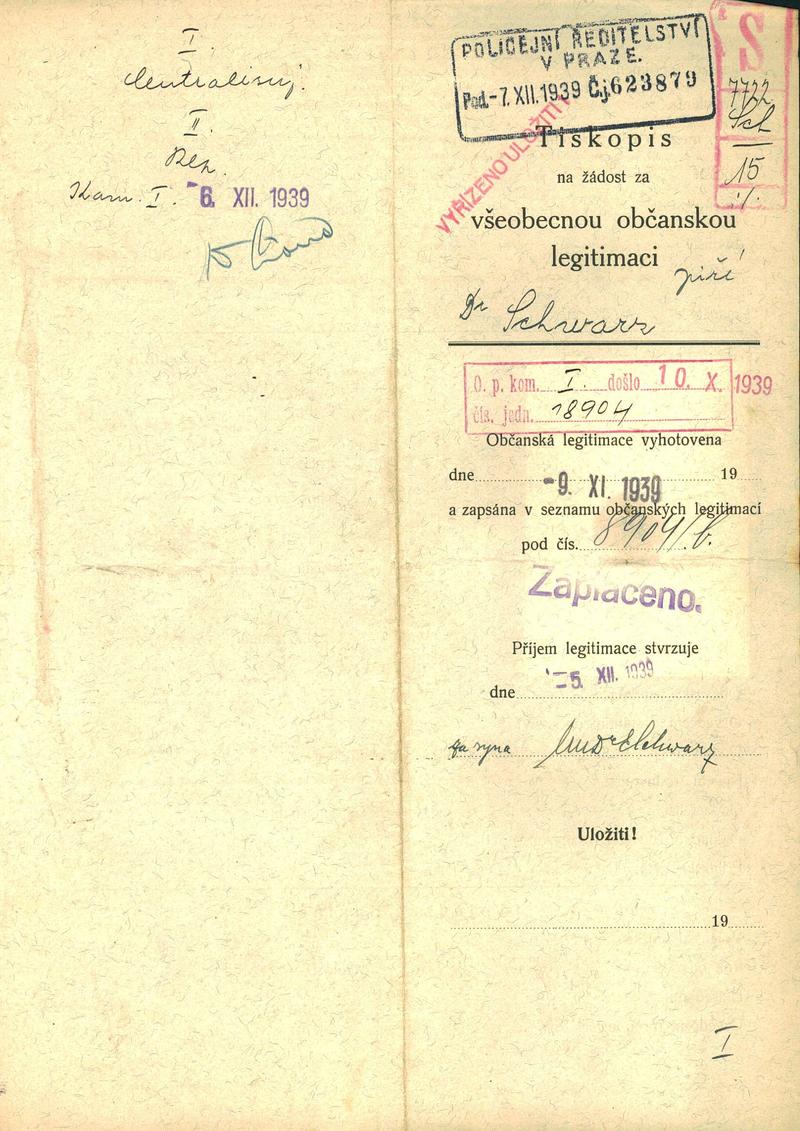 I.
II.
Kom. I. - 6. XII. 1939
POLICEJNÍ ŘEDITELSTVÍ
V PRAZE.
Pod. -7. XII. 1939 Č.j. 623879
S
7722
Sch
15
VYŘÍZENO ULOŽITI
Tiskopis
na žádost za
všeobecnou občanskou
legitimaci
Jiří
Dr Schwarz
O. p. kom. I. došlo 10. X. 1939
čís. jedn. 18904
Občanská legitimace vyhotovena
dne -9. XI. 1939 19
a zapsána v seznamu občanských legitimací
pod čís. 8904/b.
Zaplaceno.
Příjem legitimace stvrzuje
dne -5. XII. 1939
za syna MUDr Schwarz
Uložiti!
19
I